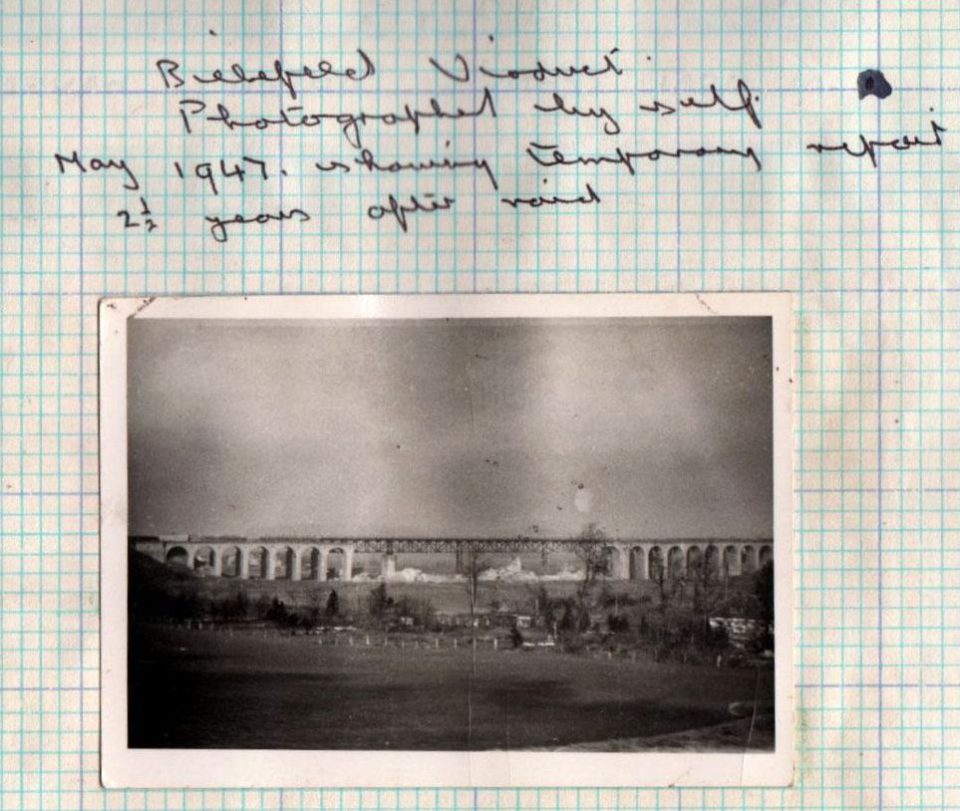 Bielefeld Viaduct.
Photographed by self.
May 1947. showing temporary repair
2½ years after raid